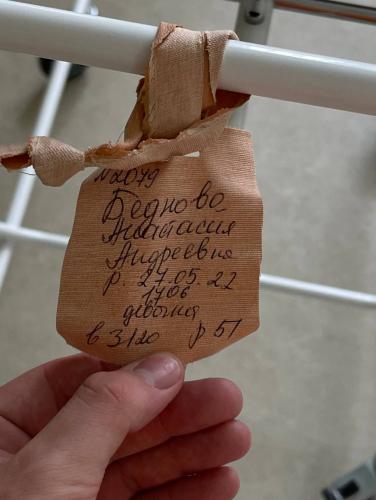 N 2079
Бедново
Анастасия
Андреевна
р. 27.05.22
1706
девочка
в 3120 р 51